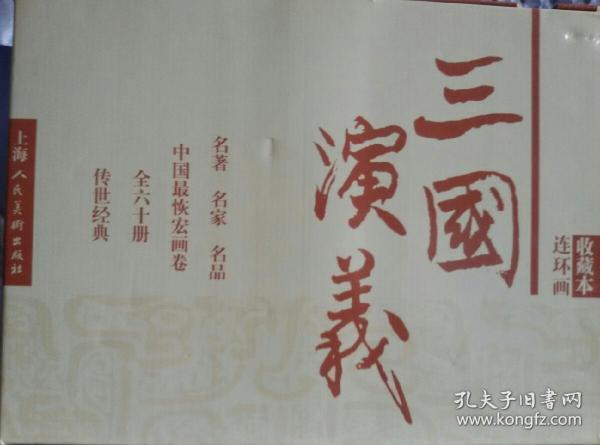 收藏本
连环画
三國
演義
名著 名家 名品
中国最恢宏画卷
全六十册
传世经典
上海人民美術出版社
孔夫子旧书网
www.kongfz.com